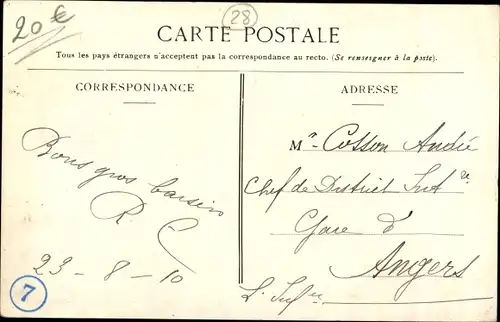 20 €
28
CARTE POSTALE
Tous les pays étrangers n'acceptent pas la correspondance au recto. (Se renseigner à la poste).
CORRESPONDANCE
Bons gros baisers
R. C
23 - 8 - 10
7
ADRESSE
Mr Cotton André
Chef de District
Gare d
Angers